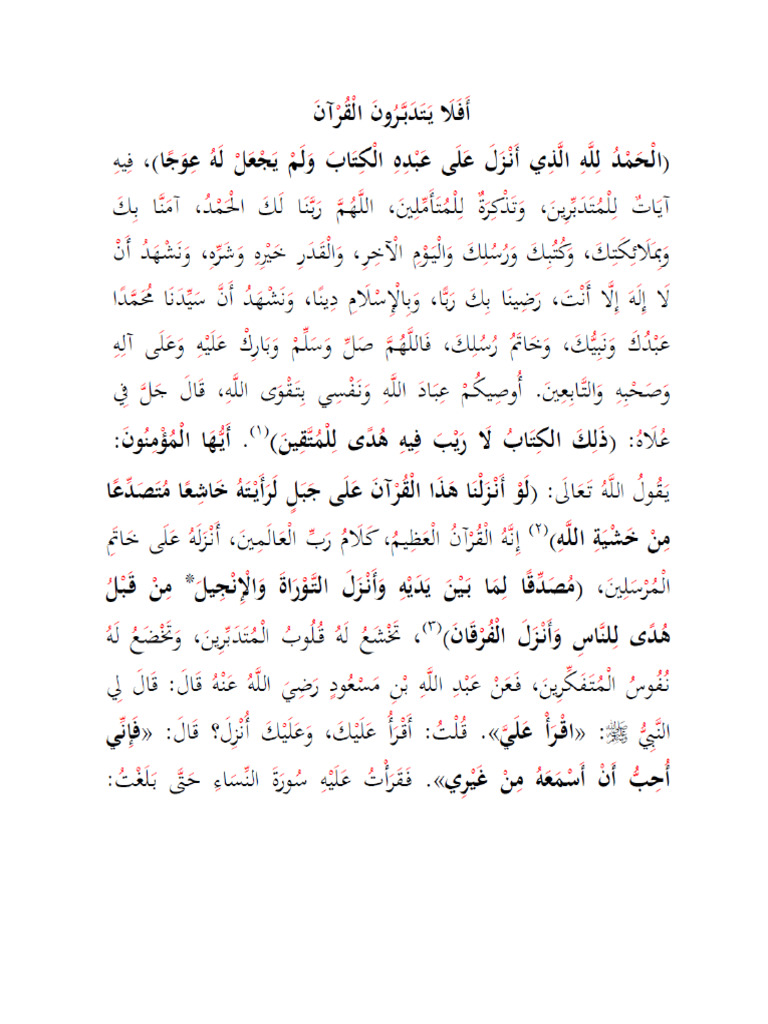 أَفَلَا يَتَدَبَّرُونَ الْقُرْآنَ
(الْحَمْدُ لِلَّهِ الَّذِي أَنْزَلَ عَلَى عَبْدِهِ الْكِتَابَ وَلَمْ يَجْعَلْ لَهُ عِوَجًا)، فِيهِ
آيَاتٌ لِلْمُتَدَبِّرِينَ، وَتَذْكِرَةٌ لِلْمُتَأَمِّلِينَ، اللَّهُمَّ رَبَّنَا لَكَ الْحَمْدُ، آمَنَّا بِكَ
وَبِمَلَائِكَتِكَ، وَكُتُبِكَ وَرُسُلِكَ وَالْيَوْمِ الْآخِرِ، وَالْقَدَرِ خَيْرِهِ وَشَرِّهِ، وَنَشْهَدُ أَنْ
لَا إِلَهَ إِلَّا أَنْتَ، رَضِينَا بِكَ رَبًّا، وَبِالْإِسْلَامِ دِينًا، وَنَشْهَدُ أَنَّ سَيِّدَنَا مُحَمَّدًا
عَبْدُكَ وَنَبِيُّكَ، وَخَاتَمُ رُسُلِكَ، فَاللَّهُمَّ صَلِّ وَسَلِّمْ وَبَارِكْ عَلَيْهِ وَعَلَى آلِهِ
وَصَحْبِهِ وَالتَّابِعِينَ. أُوصِيكُمْ عِبَادَ اللَّهِ وَنَفْسِي بِتَقْوَى اللَّهِ، قَالَ جَلَّ فِي
عُلَاهُ: (ذَلِكَ الكِتَابُ لَا رَيْبَ فِيهِ هُدًى لِلْمُتَّقِينَ)(١). أَيُّهَا الْمُؤْمِنُونَ:
يَقُولُ اللَّهُ تَعَالَى: (لَوْ أَنْزَلْنَا هَذَا الْقُرْآنَ عَلَى جَبَلٍ لَرَأَيْتَهُ خَاشِعًا مُتَصَدِّعًا
مِنْ خَشْيَةِ اللَّهِ)(٢) إِنَّهُ الْقُرْآنُ الْعَظِيمُ، كَلَامُ رَبِّ الْعَالَمِينَ، أَنْزَلَهُ عَلَى خَاتَمِ
الْمُرْسَلِينَ، (مُصَدِّقًا لِمَا بَيْنَ يَدَيْهِ وَأَنْزَلَ التَّوْرَاةَ وَالْإِنْجِيلَ* مِنْ قَبْلُ
هُدًى لِلنَّاسِ وَأَنْزَلَ الْفُرْقَانَ)(٣)، تَخْشَعُ لَهُ قُلُوبُ الْمُتَدَبِّرِينَ، وَتَخْضَعُ لَهُ
نُفُوسُ الْمُتَفَكِّرِينَ، فَعَنْ عَبْدِ اللَّهِ بْنِ مَسْعُودٍ رَضِيَ اللَّهُ عَنْهُ قَالَ: قَالَ لِي
النَّبِيُّ ﷺ: «اقْرَأْ عَلَيَّ». قُلْتُ: أَقْرَأُ عَلَيْكَ، وَعَلَيْكَ أُنْزِلَ؟ قَالَ: «فَإِنِّي
أُحِبُّ أَنْ أَسْمَعَهُ مِنْ غَيْرِي». فَقَرَأْتُ عَلَيْهِ سُورَةَ النِّسَاءِ حَتَّى بَلَغْتُ: